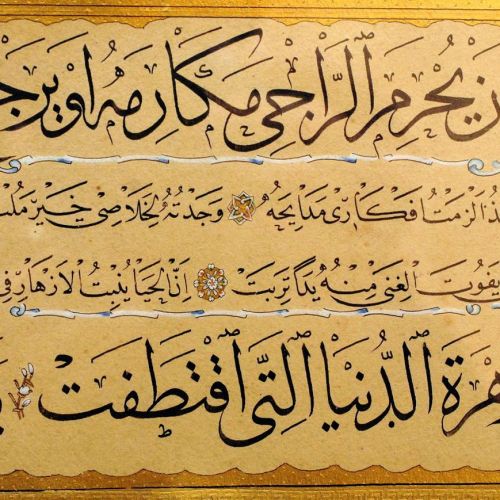 ن يُحْرِمَ الرَّاجِي مَكَارِمَهُ اَوْ يَرْجِ
ذُ الْزَمْتُ اَفْكَارِى مَدَايِحَهُ وَجَدْتُهُ لِخَلَاصِى خَيْرَ مُلْتَ
يَفُوتَ الْغِنَى مِنْهُ يَدًا تَرِبَتْ اِنَّ الْحَيَا يُنْبِتُ الْاَزْهَارَ فِى
هْرَةَ الدُّنْيَا الَّتِى اقْتَطَفَتْ